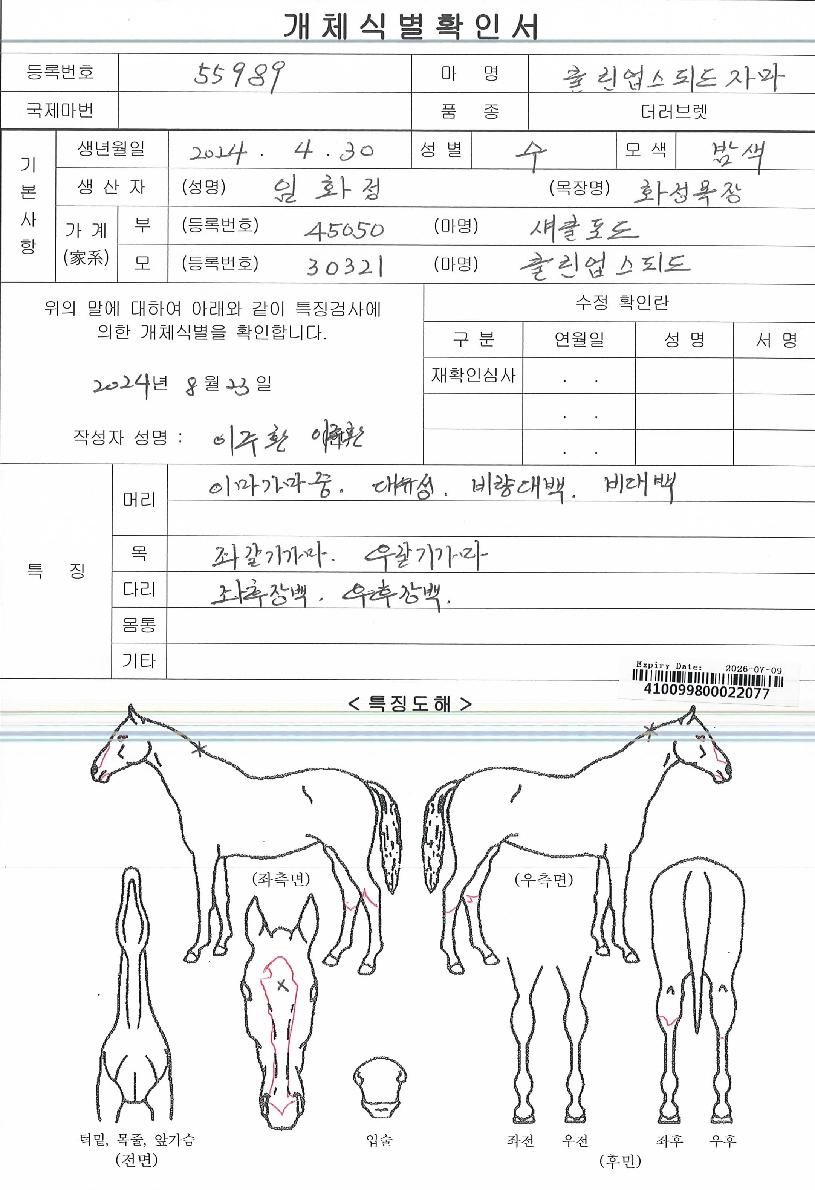 개체식별확인서
등록번호 55989 마 명 클린업스피드자마
국제마번 품 종 더러브렛
기본사항
생년월일 2024. 4. 30 성별 수 모색 밤색
생산자 (성명) 임화정 (목장명) 화성목장
가계(家系) 부 (등록번호) 45050 (마명) 섀클포드
모 (등록번호) 30321 (마명) 클린업스피드
위의 말에 대하여 아래와 같이 특징검사에
의한 개체식별을 확인합니다.
2024년 8월 23일
작성자 성명 : 이주환
수정 확인란
구 분 연월일 성 명 서 명
재확인심사 . .
. .
. .
특 징
머리 이마가마중. 대유성. 비량대백. 비대백
목 좌갈기가마. 우갈기가마
다리 좌후장백. 우후장백.
몸통
기타
Expiry Date: 2026-07-09
410099800022077
< 특징도해 >
(좌측면) (우측면)
턱밑, 목줄, 앞가슴
(전면)
입술
좌전 우전 좌후 우후
(후면)